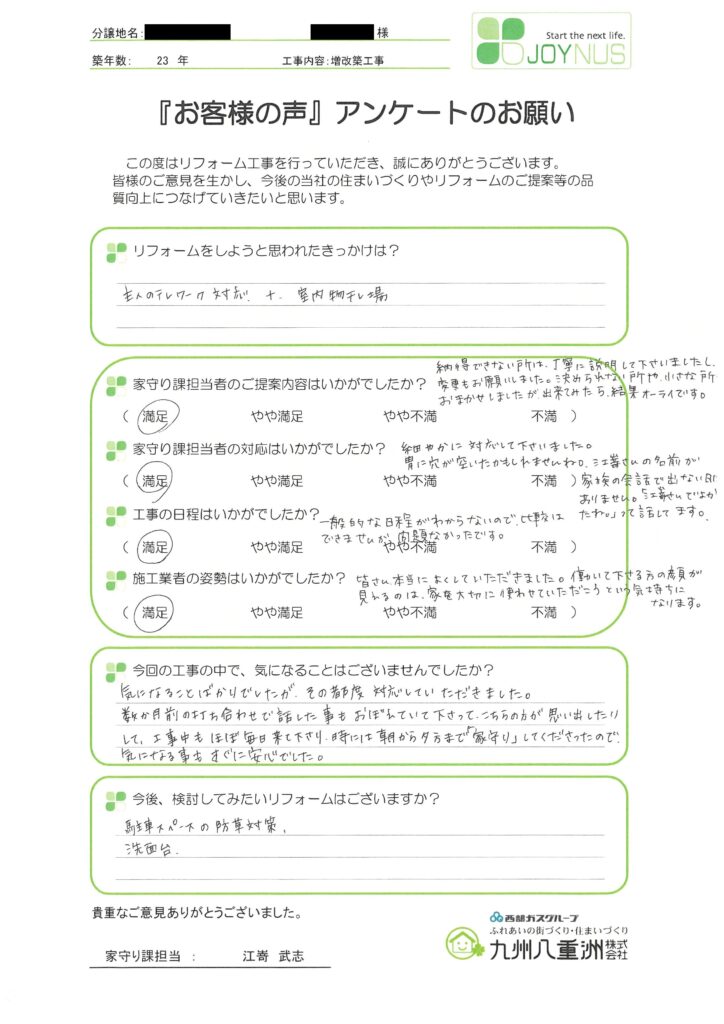 分譲地名: 様
Start the next life.
JOYNUS
築年数: 23 年 工事内容:増改築工事
『お客様の声』アンケートのお願い
この度はリフォーム工事を行っていただき、誠にありがとうございます。
皆様のご意見を生かし、今後の当社の住まいづくりやリフォームのご提案等の品
質向上につなげていきたいと思います。
リフォームをしようと思われたきっかけは?
主人のテレワーク対応. + 室内物干し場
家守り課担当者のご提案内容はいかがでしたか?
納得できない所は、丁寧に説明して下さいましたし、
変更もお願いしました。決められない所や、小さな所
おまかせしましたが出来てみたら、結果オーライです。
( 満足 やや満足 やや不満 不満 )
家守り課担当者の対応はいかがでしたか?
細やかに対応して下さいました。
胃に穴が空いたかもしれませんね。江嵜さんの名前が
家族の会話で出ない日は
ありません。「江嵜さんでよか
たね。」って話してます。
( 満足 やや満足 やや不満 不満 )
工事の日程はいかがでしたか?
一般的な日程がわからないので、比較は
できませんが、問題なかったです。
( 満足 やや満足 やや不満 不満 )
施工業者の姿勢はいかがでしたか?
皆さん本当によくしていただきました。働いて下さる方の顔が
見れるのは、家を大切に使わせていただこうという気持ちに
なります。
( 満足 やや満足 やや不満 不満 )
今回の工事の中で、気になることはございませんでしたか?
気になることばかりでしたが、その都度対応していただきました。
数か月前の打ち合わせで話した事もおぼえていて下さって、こちらの方が思い出したり
して、工事中もほぼ毎日来て下さり、時には朝から夕方まで「家守り」してくださったので、
気になる事もすぐに安心でした。
今後、検討してみたいリフォームはございますか?
駐車スペースの防草対策、
洗面台.
貴重なご意見ありがとうございました。
西部ガスグループ
ふれあいの街づくり・住まいづくり
九州八重洲株式会社
家守り課担当 : 江嵜 武志